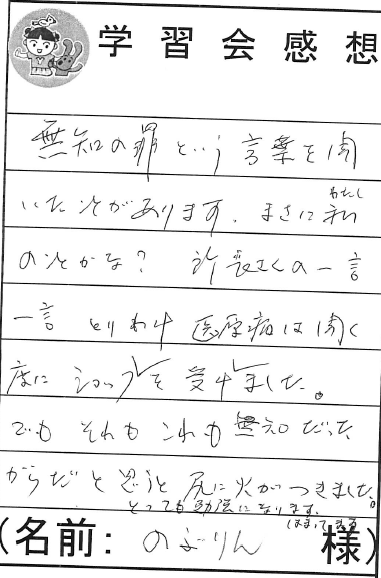 学習会感想
無知の罪という言葉を聞
いたことがあります。まさに私
わたし
のことかな? 許斐さんの一言
一言 とりわけ 医原病は聞く
度に ショックを受けました。
でも それも これも 無知だった
からだと思うと 尻に火がつきました。
とっても勉強になります。
(名前: のぶりん 様)